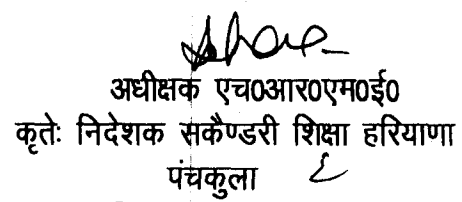 अधीक्षक एच0आर0एम0ई0
कृतेः निदेशक सकैण्डरी शिक्षा हरियाणा
पंचकुला